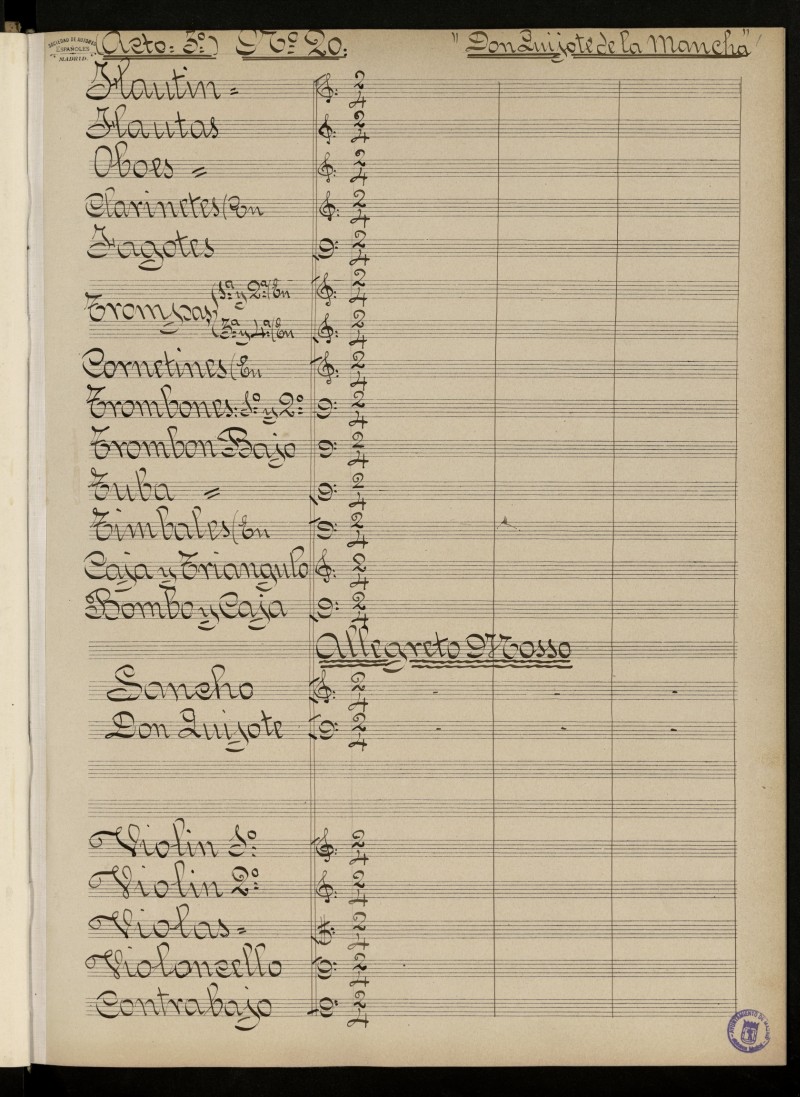 SOCIEDAD DE AUTORES
ESPAÑOLES
MADRID.
(Acto: 3º) Nº 20: "Don Quijote de la Mancha"
Flautin =
Flautas
Oboes =
Clarinetes (En
Fagotes
Trompas (1ª y 2ª (En
(3ª y 4ª (En
Cornetines (En
Trombones: 1º y 2º
Trombon Bajo
Tuba =
Timbales (En
Caja y Triangulo
Bombo y Caja
Allegreto Mosso
Sancho
Don Quijote
Violin 1º
Violin 2º
Violas =
Violoncello
Contrabajo
AYUNTAMIENTO DE MADRID